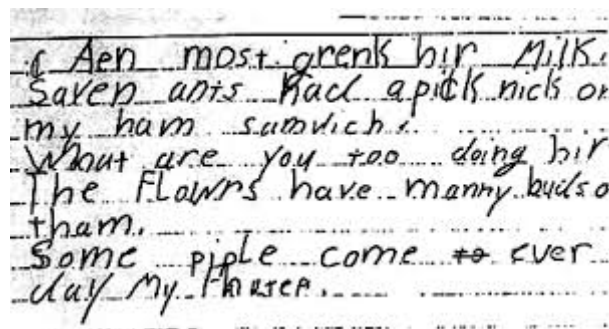 Aen most grenk hir Milk.
Saven ants Had a pitk nick on
my ham samvich.
What are you too doing hir
The Flowrs have manny buds o
tham.
Some piple come to ever
day My